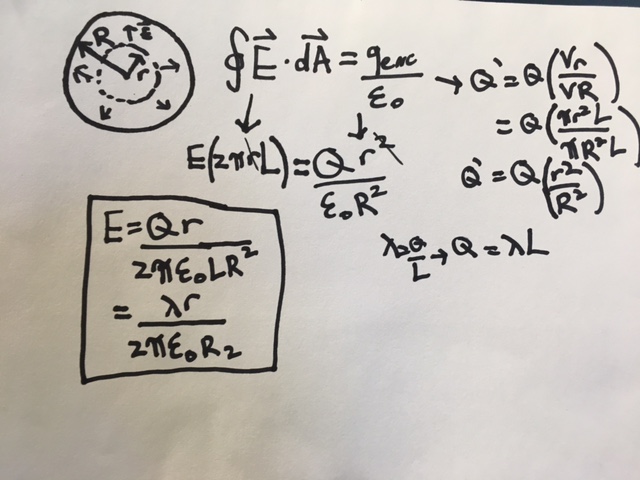 R E⃗ r
∮E⃗·dA⃗ = qenc/ε₀ → Q' = Q(Vr/VR)
= Q(πr²L/πR²L)
E(2πrL) = Qr²/ε₀R²
Q' = Q(r²/R²)
λ=Q/L → Q = λL
E = Qr/2πε₀LR²
= λr/2πε₀R₂